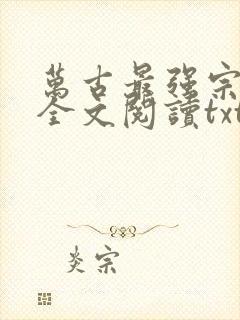 萬古最强宗
全文閱讀txt
炎宗